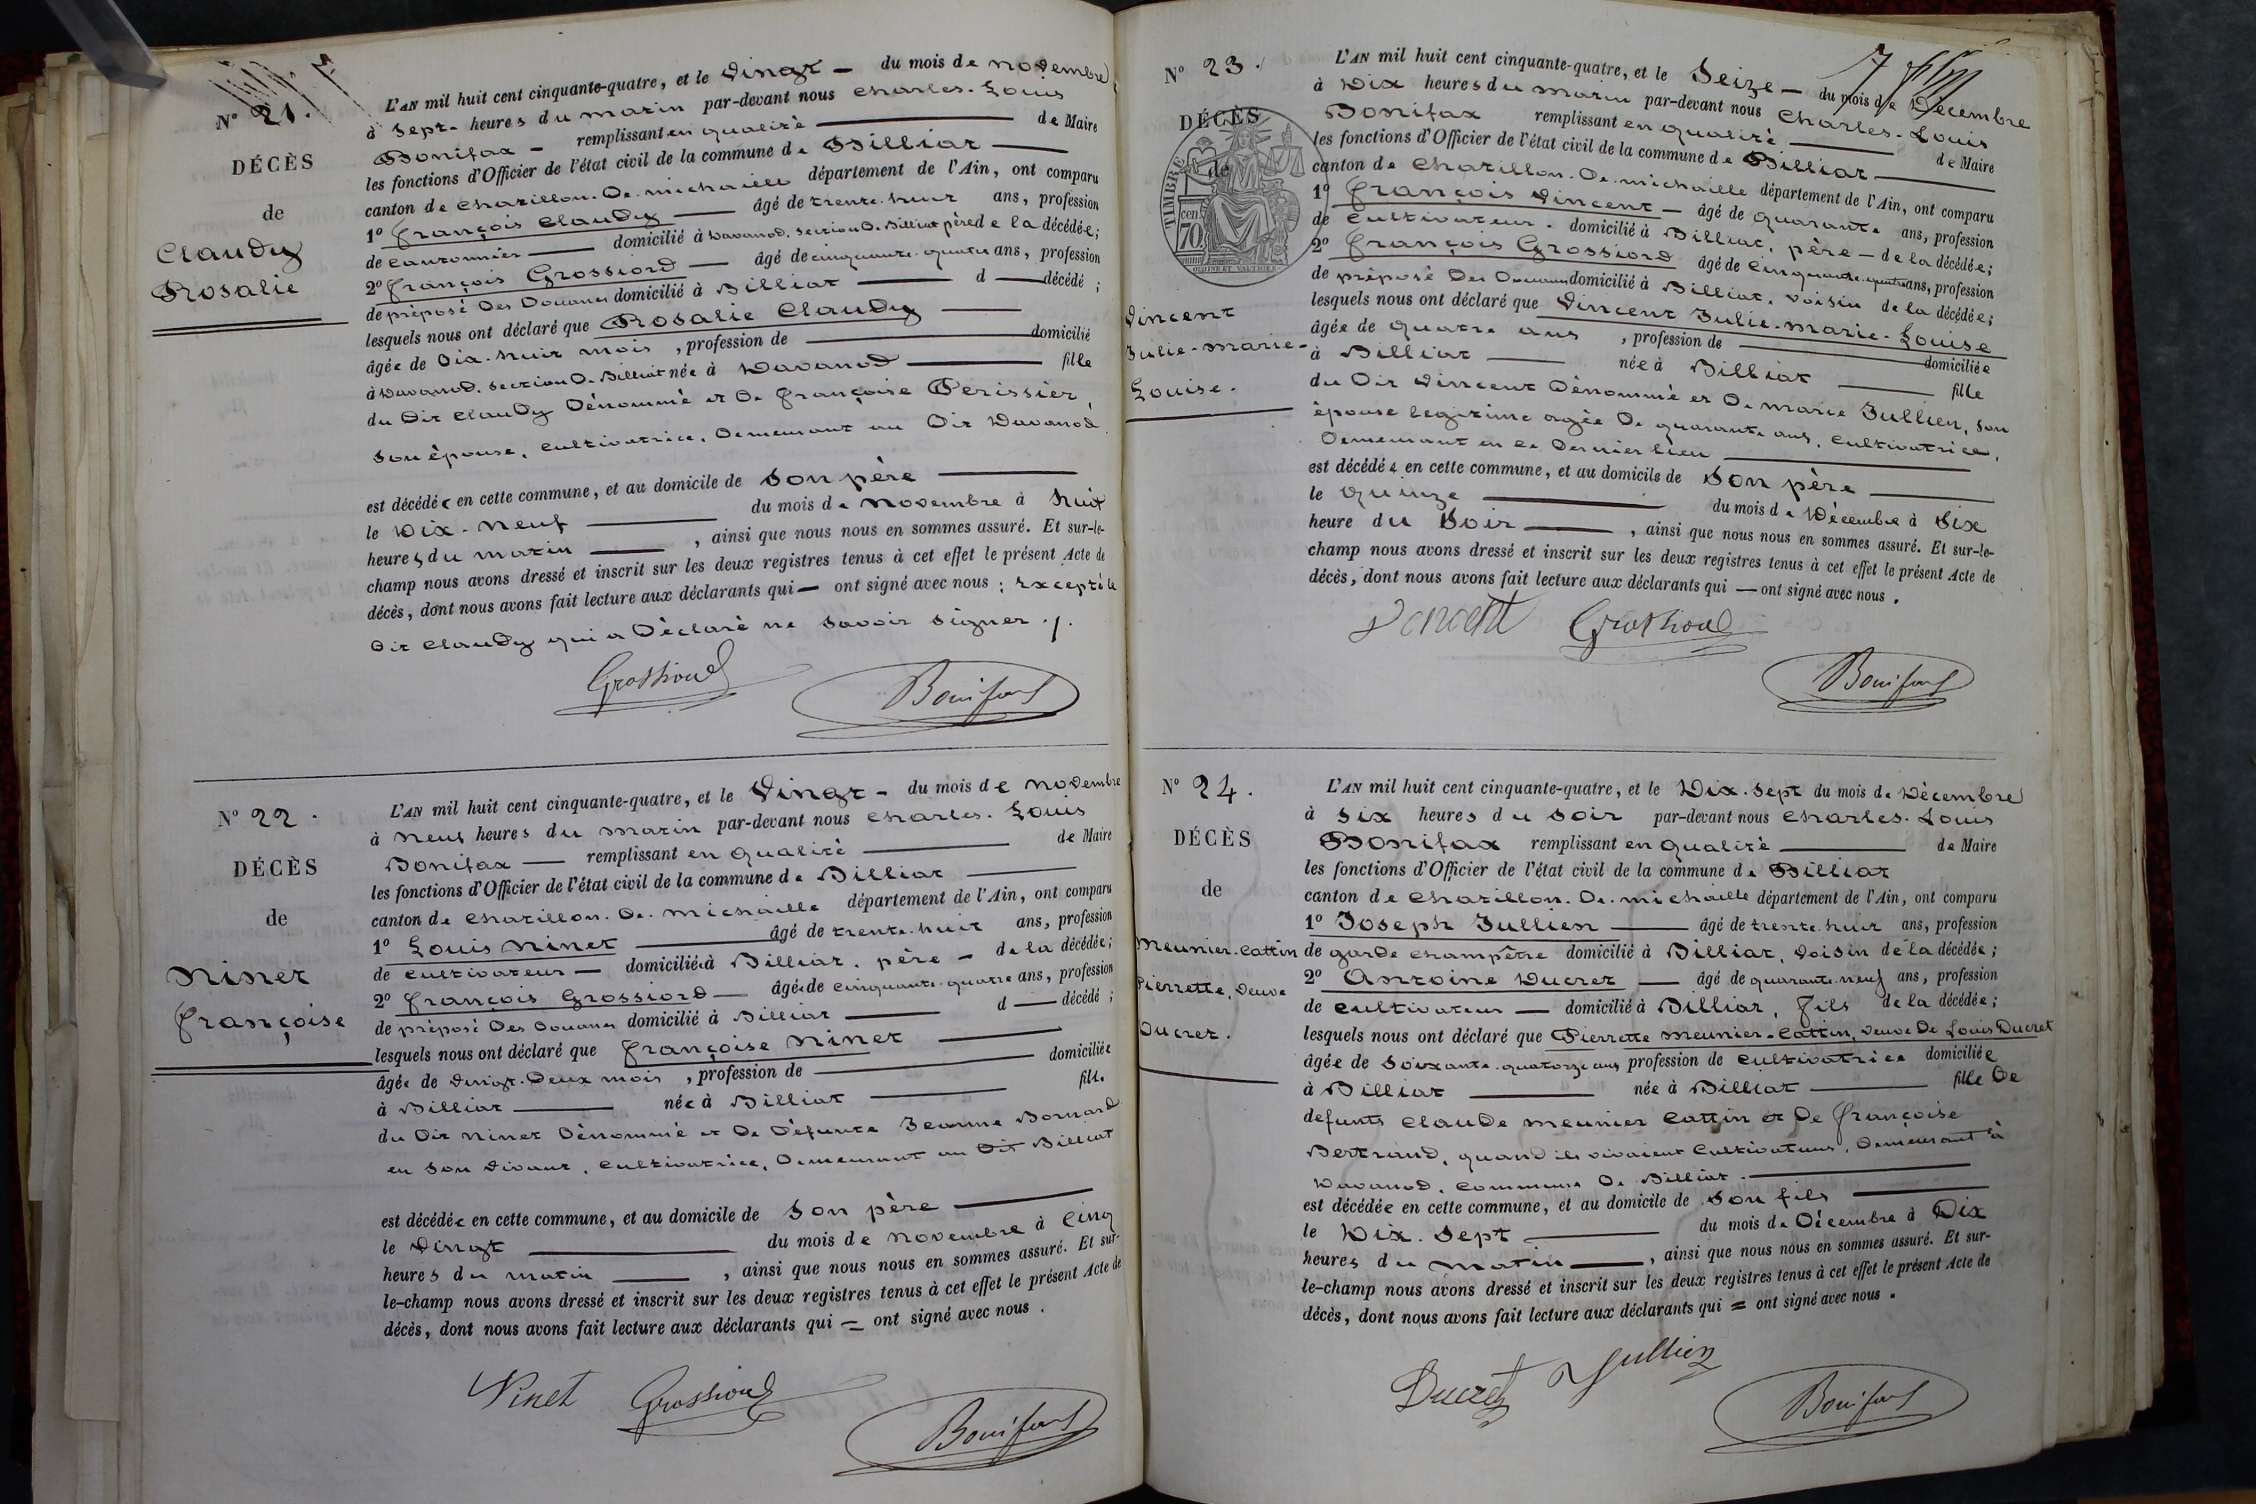 N° 21.
DÉCÈS
de
Claudy
Rosalie
L'AN mil huit cent cinquante-quatre, et le Vingt — du mois de Novembre
à Sept heures du matin par-devant nous Charles-Louis
Bonifax — remplissant en qualité de Maire
les fonctions d'Officier de l'état civil de la commune de Billiat
canton de Chatillon-De-michaille département de l'Ain, ont comparu
1° François Claudy — âgé de trente-huit ans, profession
de cantonnier domicilié à Davanod, section De Billiat père de la décédée;
2° François Grossiord — âgé de cinquante-quatre ans, profession
de préposé Des Douanes domicilié à Billiat d — décédé ;
lesquels nous ont déclaré que Rosalie Claudy
âgée de Dix-huit mois, profession de domicilié
à Davanod, section De Billiat née à Davanod fille
du Dit Claudy Dénommé et De Françoise Perissier,
son épouse, cultivatrice, Demeurant au Dit Davanod
est décédée en cette commune, et au domicile de Son père
le Dix-Neuf du mois de Novembre à huit
heures du matin, ainsi que nous nous en sommes assuré. Et sur-le-
champ nous avons dressé et inscrit sur les deux registres tenus à cet effet le présent Acte de
décès, dont nous avons fait lecture aux déclarants qui — ont signé avec nous ; Excepté le
Dit Claudy qui a Déclaré ne Savoir Signer ./.
Grossiord
Bonifax
N° 22.
DÉCÈS
de
Ninet
Françoise
L'AN mil huit cent cinquante-quatre, et le Vingt — du mois de Novembre
à Neuf heures du matin par-devant nous Charles-Louis
Bonifax — remplissant en qualité de Maire
les fonctions d'Officier de l'état civil de la commune de Billiat
canton de Chatillon-De-michaille département de l'Ain, ont comparu
1° Louis Ninet âgé de trente-huit ans, profession
de cultivateur — domicilié à Billiat, père — de la décédée;
2° François Grossiord — âgé de cinquante-quatre ans, profession
de préposé Des Douanes domicilié à Billiat d — décédé ;
lesquels nous ont déclaré que Françoise Ninet
âgée de Vingt-Deux mois, profession de domiciliée
à Billiat née à Billiat fille
du Dit Ninet Dénommé et De Défunte Jeanne Bornard
en Son Vivant, cultivatrice, Demeurant au Dit Billiat
est décédée en cette commune, et au domicile de Son père
le Vingt du mois de Novembre à Cinq
heures du matin, ainsi que nous nous en sommes assuré. Et sur-
le-champ nous avons dressé et inscrit sur les deux registres tenus à cet effet le présent Acte de
décès, dont nous avons fait lecture aux déclarants qui = ont signé avec nous .
Ninet Grossiord
Bonifax
N° 23.
DÉCÈS
de
TIMBRE
70 cen.
Vincent
Julie-Marie-
Louise.
L'AN mil huit cent cinquante-quatre, et le Seize — du mois de Décembre
à Dix heures du matin par-devant nous Charles-Louis
Bonifax remplissant en qualité de Maire
les fonctions d'Officier de l'état civil de la commune de Billiat
canton de Chatillon-De-michaille département de l'Ain, ont comparu
1° François Vincent — âgé de quarante ans, profession
de cultivateur. domicilié à Billiat, père — de la décédée;
2° François Grossiord âgé de Cinquante-quatre ans, profession
de préposé Des Douanes domicilié à Billiat, voisin de la décédée;
lesquels nous ont déclaré que Vincent Julie-Marie-Louise
âgée de quatre ans, profession de domiciliée
à Billiat née à Billiat fille
du Dit Vincent Dénommé et De Marie Jullien, son
épouse légitime agée De quarante ans, cultivatrice,
Demeurant en ce Dernier lieu
est décédée en cette commune, et au domicile de Son père
le Quinze du mois de Décembre à Six
heure du Soir, ainsi que nous nous en sommes assuré. Et sur-le-
champ nous avons dressé et inscrit sur les deux registres tenus à cet effet le présent Acte de
décès, dont nous avons fait lecture aux déclarants qui — ont signé avec nous .
Vincent Grossiord
Bonifax
N° 24.
DÉCÈS
de
Meunier-Cattin
Pierrette, Veuve
Ducret.
L'AN mil huit cent cinquante-quatre, et le Dix-Sept du mois de Décembre
à Six heures du Soir par-devant nous Charles-Louis
Bonifax remplissant en qualité de Maire
les fonctions d'Officier de l'état civil de la commune de Billiat
canton de Chatillon-De-michaille département de l'Ain, ont comparu
1° Joseph Jullien — âgé de trente-huit ans, profession
de garde champêtre domicilié à Billiat, Voisin de la décédée ;
2° Antoine Ducret — âgé de quarante-neuf ans, profession
de cultivateur — domicilié à Billiat, fils de la décédée ;
lesquels nous ont déclaré que Pierrette Meunier-Cattin, Veuve De Louis Ducret
âgée de Soixante-quatorze ans profession de cultivatrice domiciliée
à Billiat née à Billiat fille De
defunts Claude Meunier Cattin et De Françoise
Bertrand, quand ils vivaient Cultivateurs, Demeurant à
Davanod, Commune De Billiat.
est décédée en cette commune, et au domicile de Son fils
le Dix-Sept du mois de Décembre à Dix
heures du matin, ainsi que nous nous en sommes assuré. Et sur-
le-champ nous avons dressé et inscrit sur les deux registres tenus à cet effet le présent Acte de
décès, dont nous avons fait lecture aux déclarants qui = ont signé avec nous .
Ducret Jullien
Bonifax